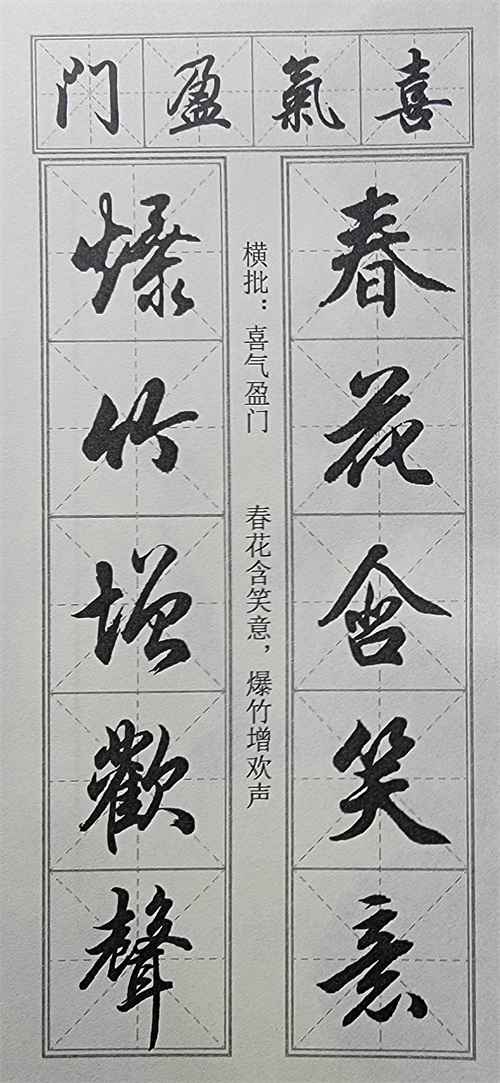 喜氣盈门
春花含笑意
爆竹增歡聲
横批：喜气盈门
春花含笑意，爆竹增欢声